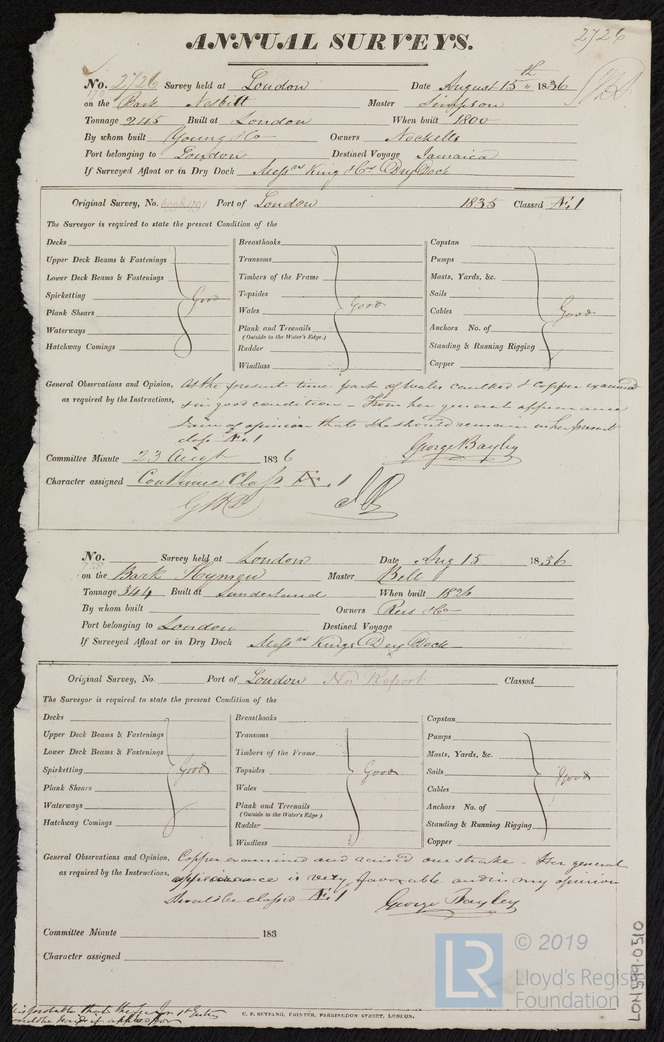 ANNUAL SURVEYS. 2726
No. 2726 Survey held at London Date August 15th 1836
on the Bark Nesbitt Master Simpson
Tonnage 245 Built at London When built 1800
By whom built Young & Co Owners
Port belonging to London Destined Voyage Jamaica
If Surveyed Afloat or in Dry Dock Messrs King & Co Dry Dock
Original Survey, No. Port of London 1835 Classed Æ 1
The Surveyor is required to state the present Condition of the
Decks Breasthooks Capstan
Upper Deck Beams & Fastenings Transoms Pumps
Lower Deck Beams & Fastenings Timbers of the Frame Masts, Yards, &c.
Spirketting Good Topsides Good Sails
Plank Shears Wales Cables Good
Waterways Plank and Treenails Anchors No. of
(Outside to the Water's Edge.)
Hatchway Comings Rudder Standing & Running Rigging
Windlass Copper
General Observations and Opinion, At the present time part of wales caulked & Copper examined
as required by the Instructions, & in good condition - From her general appearance
I am of opinion that she should remain in her present
class Æ 1
Committee Minute 23 Augt 1836 George Bayley
Character assigned Continue Class Æ 1
No. Survey held at London Date Aug 15 1836
on the Bark Hymen Master Bell
Tonnage 344 Built at Sunderland When built 1826
By whom built Owners Rees & Co
Port belonging to London Destined Voyage
If Surveyed Afloat or in Dry Dock Messrs Kings Dry Dock
Original Survey, No. Port of London No Report Classed
The Surveyor is required to state the present Condition of the
Decks Breasthooks Capstan
Upper Deck Beams & Fastenings Transoms Pumps
Lower Deck Beams & Fastenings Timbers of the Frame Masts, Yards, &c.
Spirketting Good Topsides Good Sails Good
Plank Shears Wales Cables
Waterways Plank and Treenails Anchors No. of
(Outside to the Water's Edge)
Hatchway Comings Rudder Standing & Running Rigging
Windlass Copper
General Observations and Opinion, Copper examined and raised one strake - Her general
as required by the Instructions, appearance is very favorable and in my opinion
should be classed Æ 1 George Bayley
Committee Minute 183
Character assigned
C. F. SEYFANG, PRINTER, FARRINGDON STREET, LONDON.
LON599-0310
LR © 2019
Lloyd's Register
Foundation